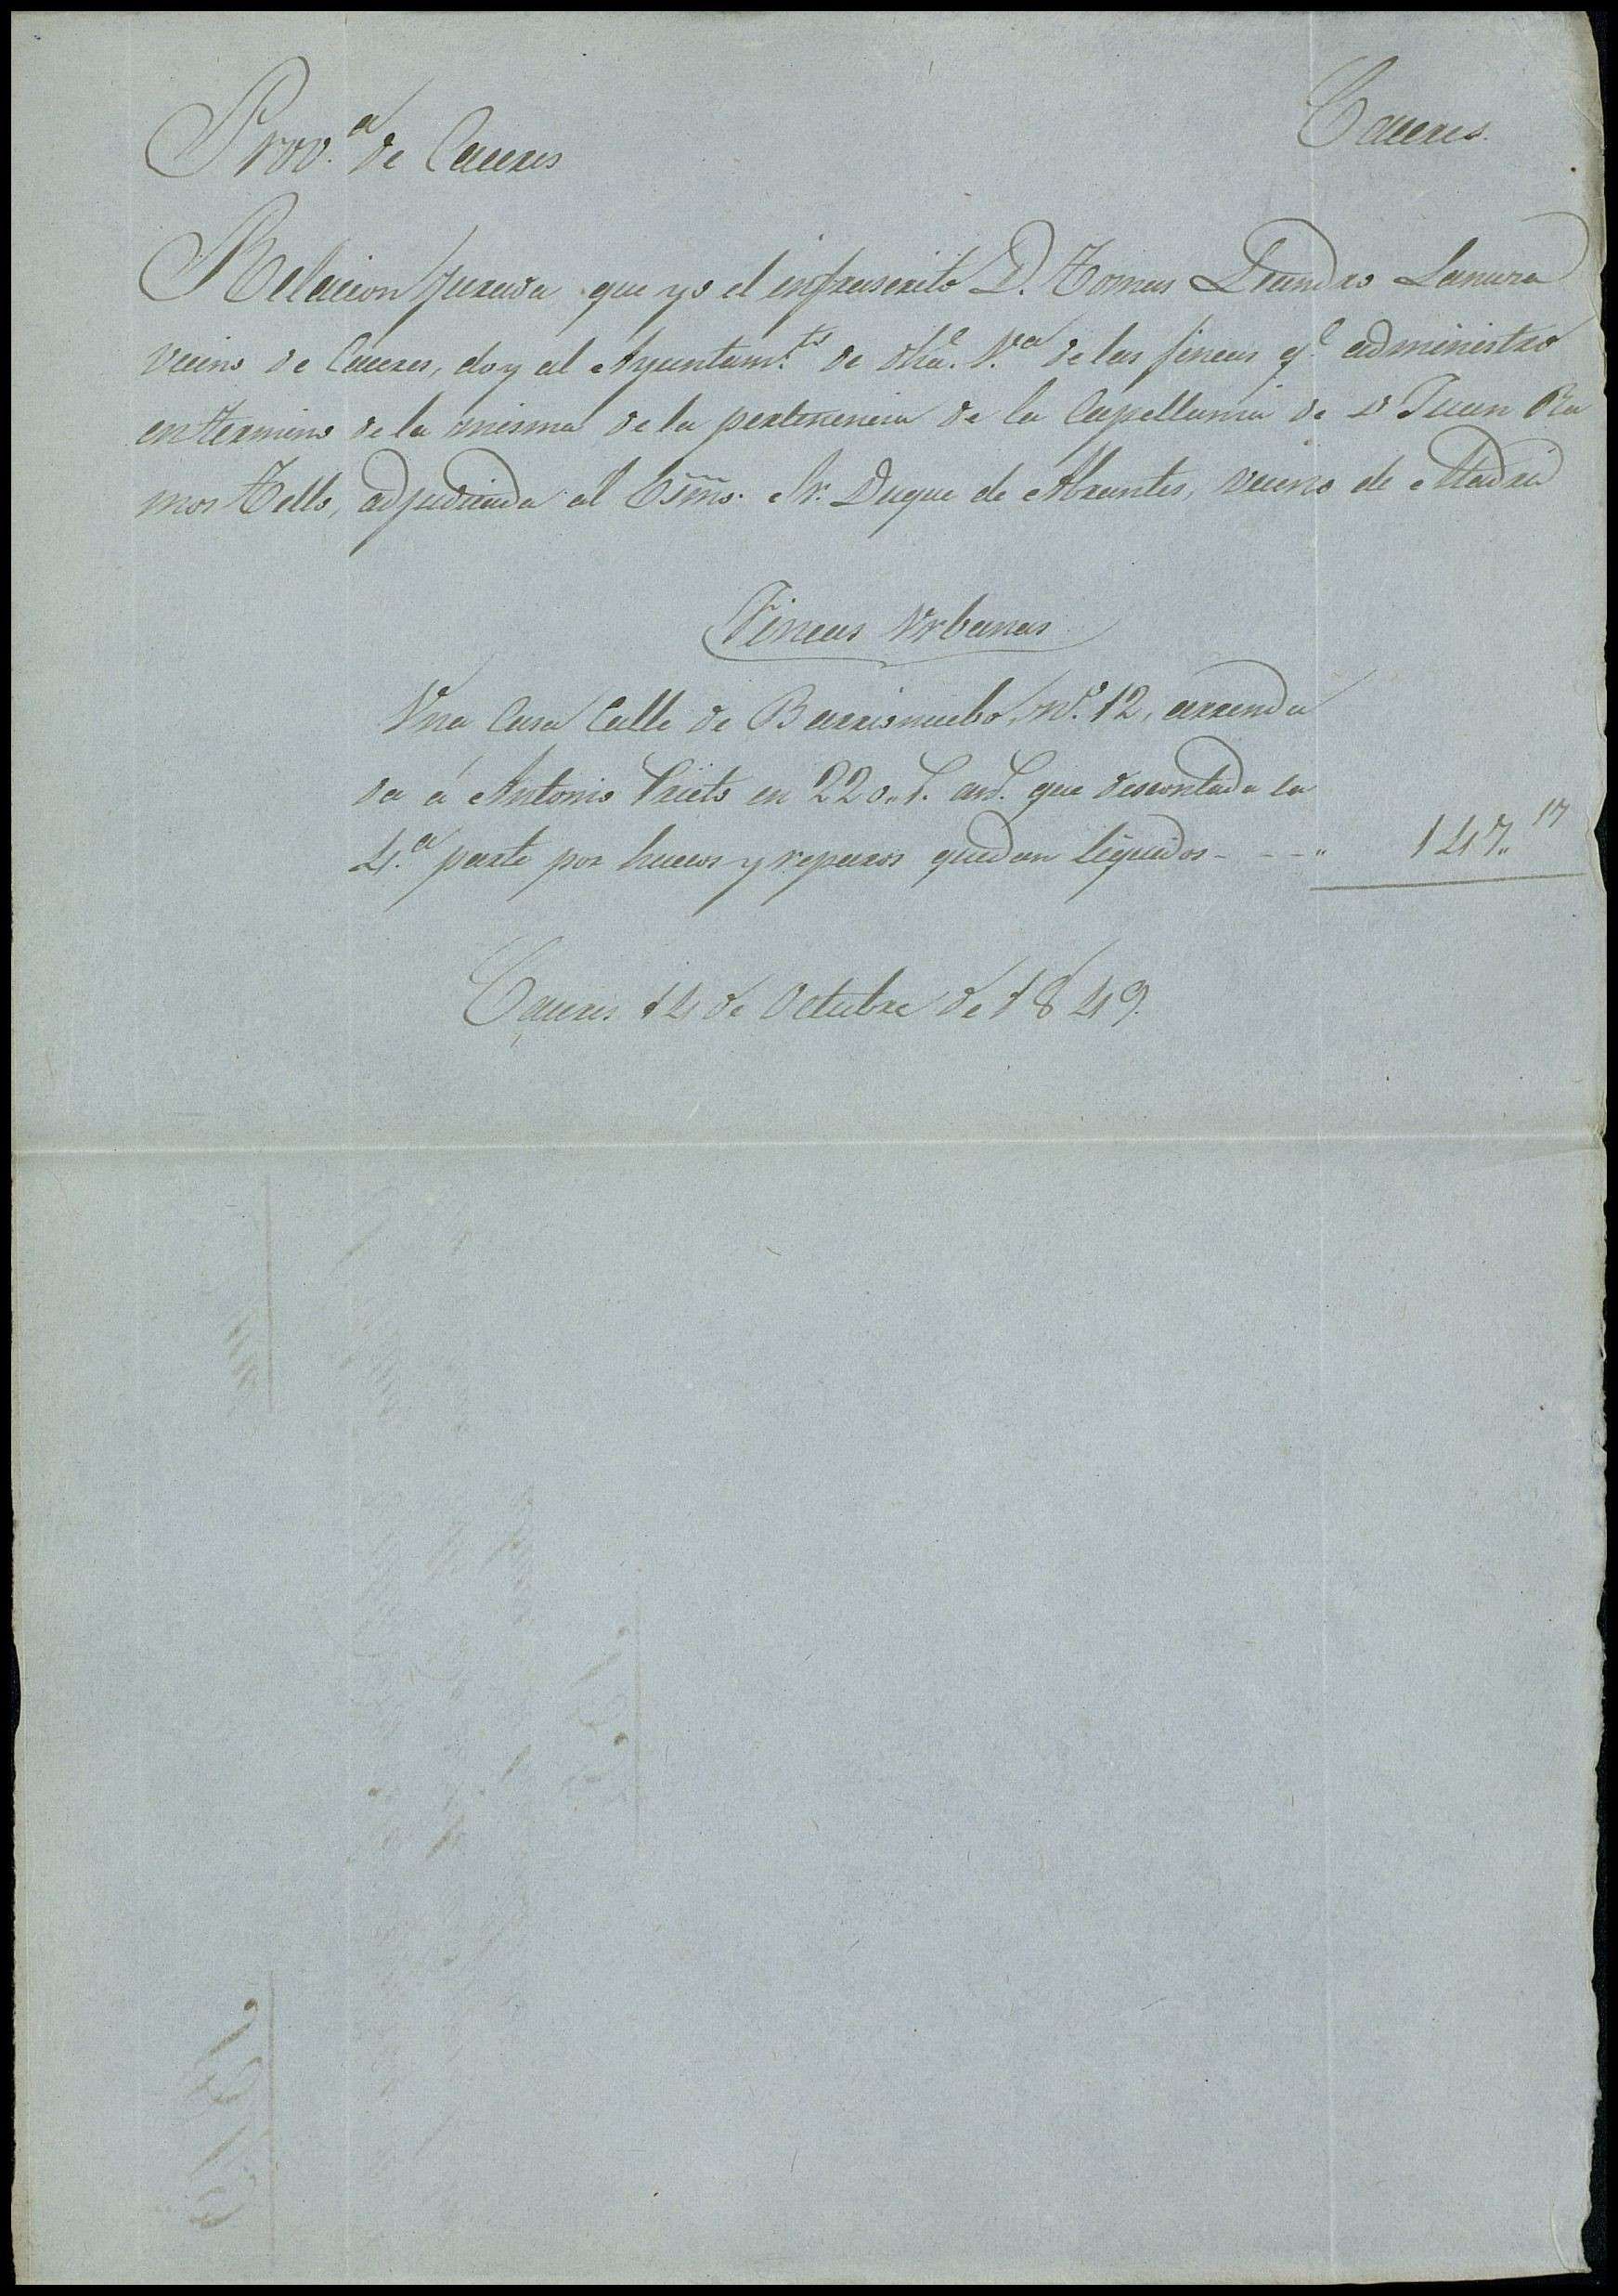 Prov.ª de Caceres
Caceres.
Relacion jurada que yo el infrascrito D. Tomas Leandro Lanura
vecino de Caceres, doy al Ayuntam.to de dha. V.ª de las fincas q.e administro
en termino de la misma de la pertenencia de la Capellania de D Juan Ra
mos Tello, adjudicada al Esmo. Sr. Duque de Abrantes, vecino de Madrid
Fincas Urbanas
Una Casa Calle de Barrionuebo, n.º 12, arrenda
da á Antonio Prieto en 220 que descontada la
4.ª parte por huecos y reparos quedan liquidos - - - "
147" 17
Caceres 14 de Octubre de 1849.